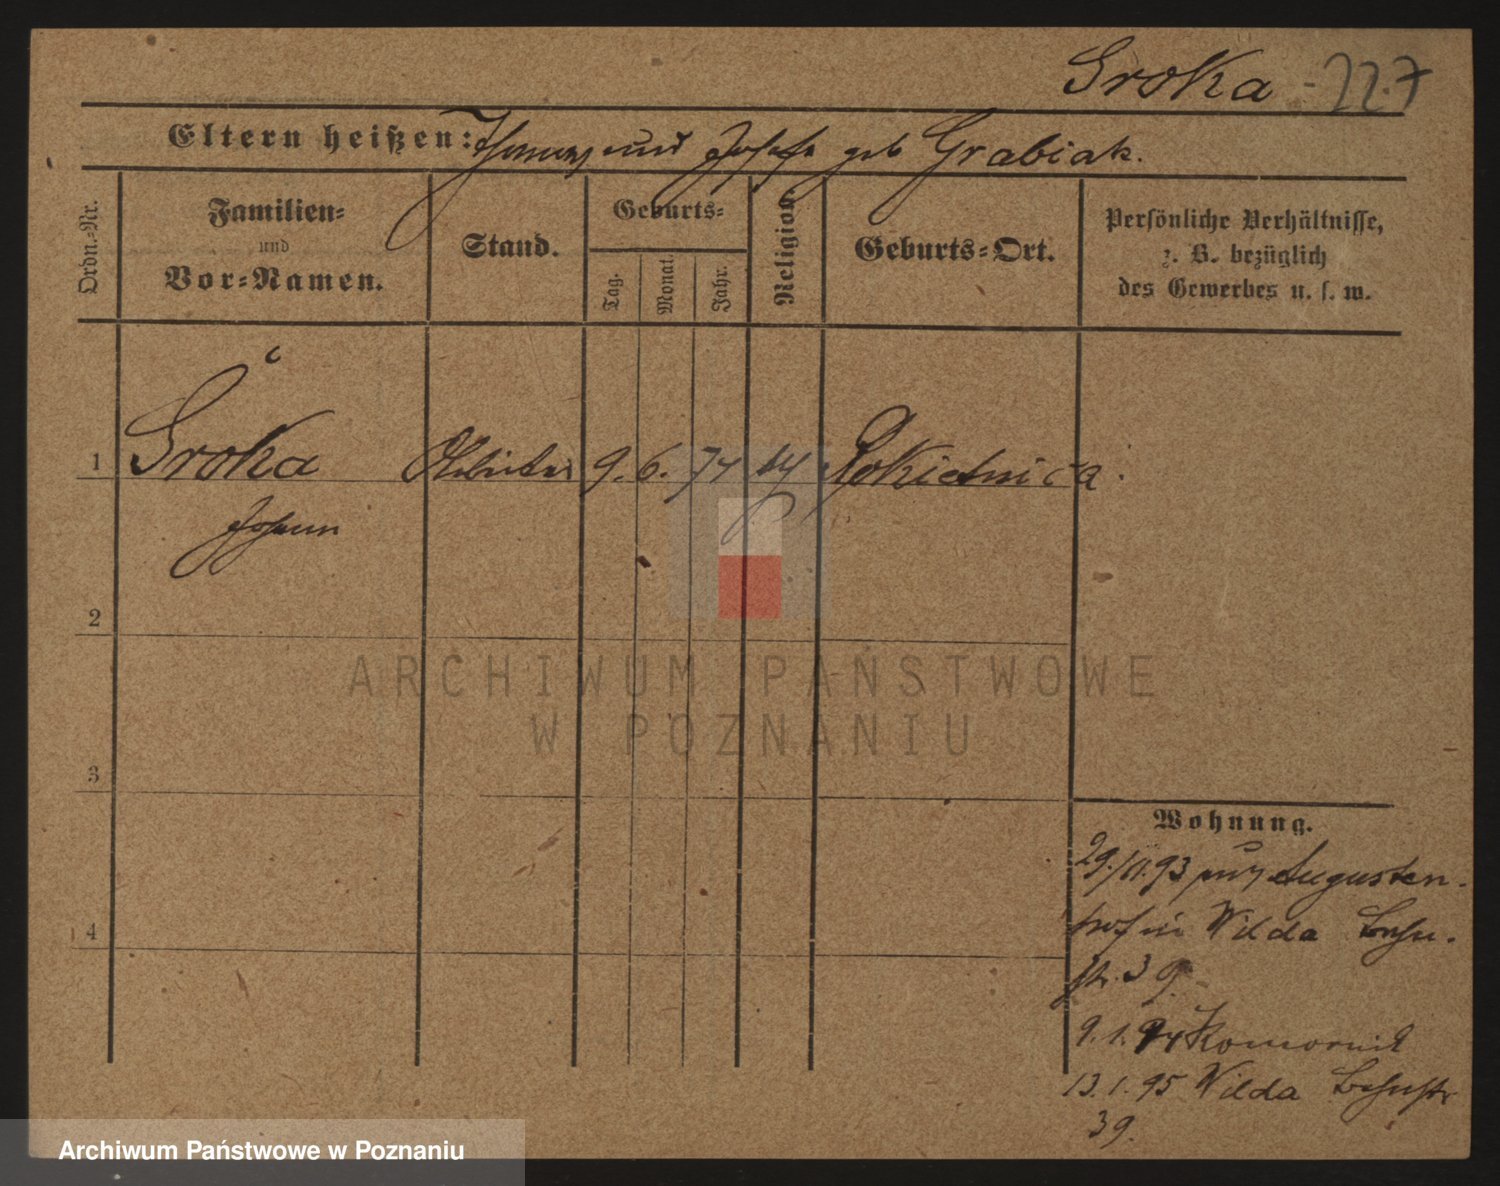 Sroka - 227
Eltern heißen: Thomas und Josefa geb Grabiak.
Ordn.-Nr.
Familien-
und
Vor-Namen.
Stand.
Geburts-
Tag.
Monat.
Jahr.
Religion
Geburts-Ort.
Persönliche Verhältnisse,
z. B. bezüglich
des Gewerbes u. s. w.
1 Sroka Arbeiter 9. 6. 74 Rokietnica
Johann
2
3
4
Wohnung.
29./11.93 Augusten-
Wilda Bahn-
str. 39.
9.1.94 Komornik
13.1.95 Wilda Bahnstr
39.
ARCHIWUM PAŃSTWOWE
W POZNANIU
Archiwum Państwowe w Poznaniu